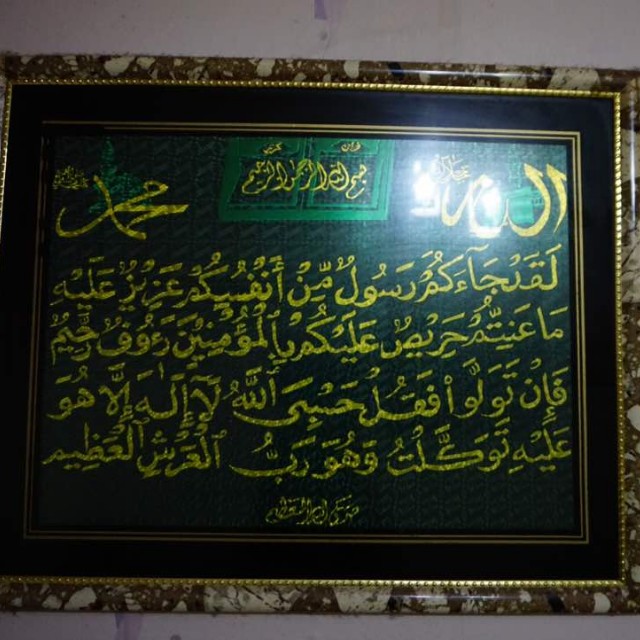 الله
بسم الله الرحمن الرحيم
محمد
لَقَدْ جَآءَكُمْ رَسُولٌ مِّنْ أَنْفُسِكُمْ عَزِيزٌ عَلَيْهِ
مَا عَنِتُّمْ حَرِيصٌ عَلَيْكُمْ بِالْمُؤْمِنِينَ رَءُوفٌ رَّحِيمٌ
فَإِنْ تَوَلَّوْا فَقُلْ حَسْبِيَ اللَّهُ لَآ إِلَٰهَ إِلَّا هُوَ
عَلَيْهِ تَوَكَّلْتُ وَهُوَ رَبُّ الْعَرْشِ الْعَظِيمِ
صدق الله العظيم